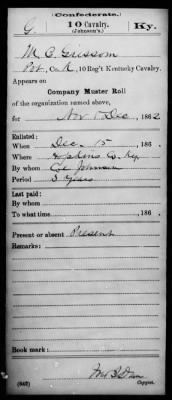 (Confederate.)
G. 10 Cavalry. Ky.
(Johnson's.)
M. C. Grissom
Pvt, Co. K, 10 Reg't Kentucky Cavalry.
Appears on
Company Muster Roll
of the organization named above,
for Nov & Dec, 1862
Enlisted:
When Dec. 15, 186
Where Hopkins Co. Ky.
By whom Col Johnson
Period 3 years
Last paid:
By whom
To what time , 186 .
Present or absent Present
Remarks:
Book mark:
(642) Copyist.